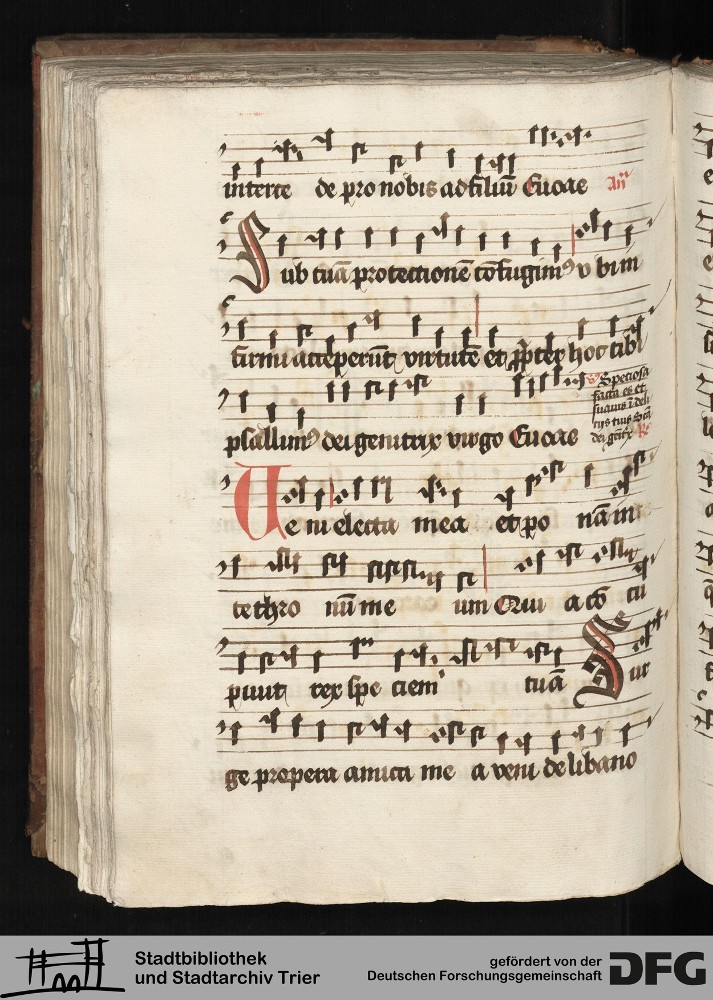 interce de pro nobis ad filiū Euoae Añ
Sub tuā protectionē cōfugim9 vbi in
firmi acceperūt virtutē et ꝓpter hoc tibi
psallim9 dei genitrix virgo Euoae
Speciosa
facta es et
suauis ī deli
cijs tuis
dei
Ueni electa mea et po nā in te
te thro nū me um Quia cō cu
piuit rex spe ciem tuā Sur
ge propera amica me a veni de libano
Stadtbibliothek
und Stadtarchiv Trier
gefördert von der
Deutschen Forschungsgemeinschaft
DFG